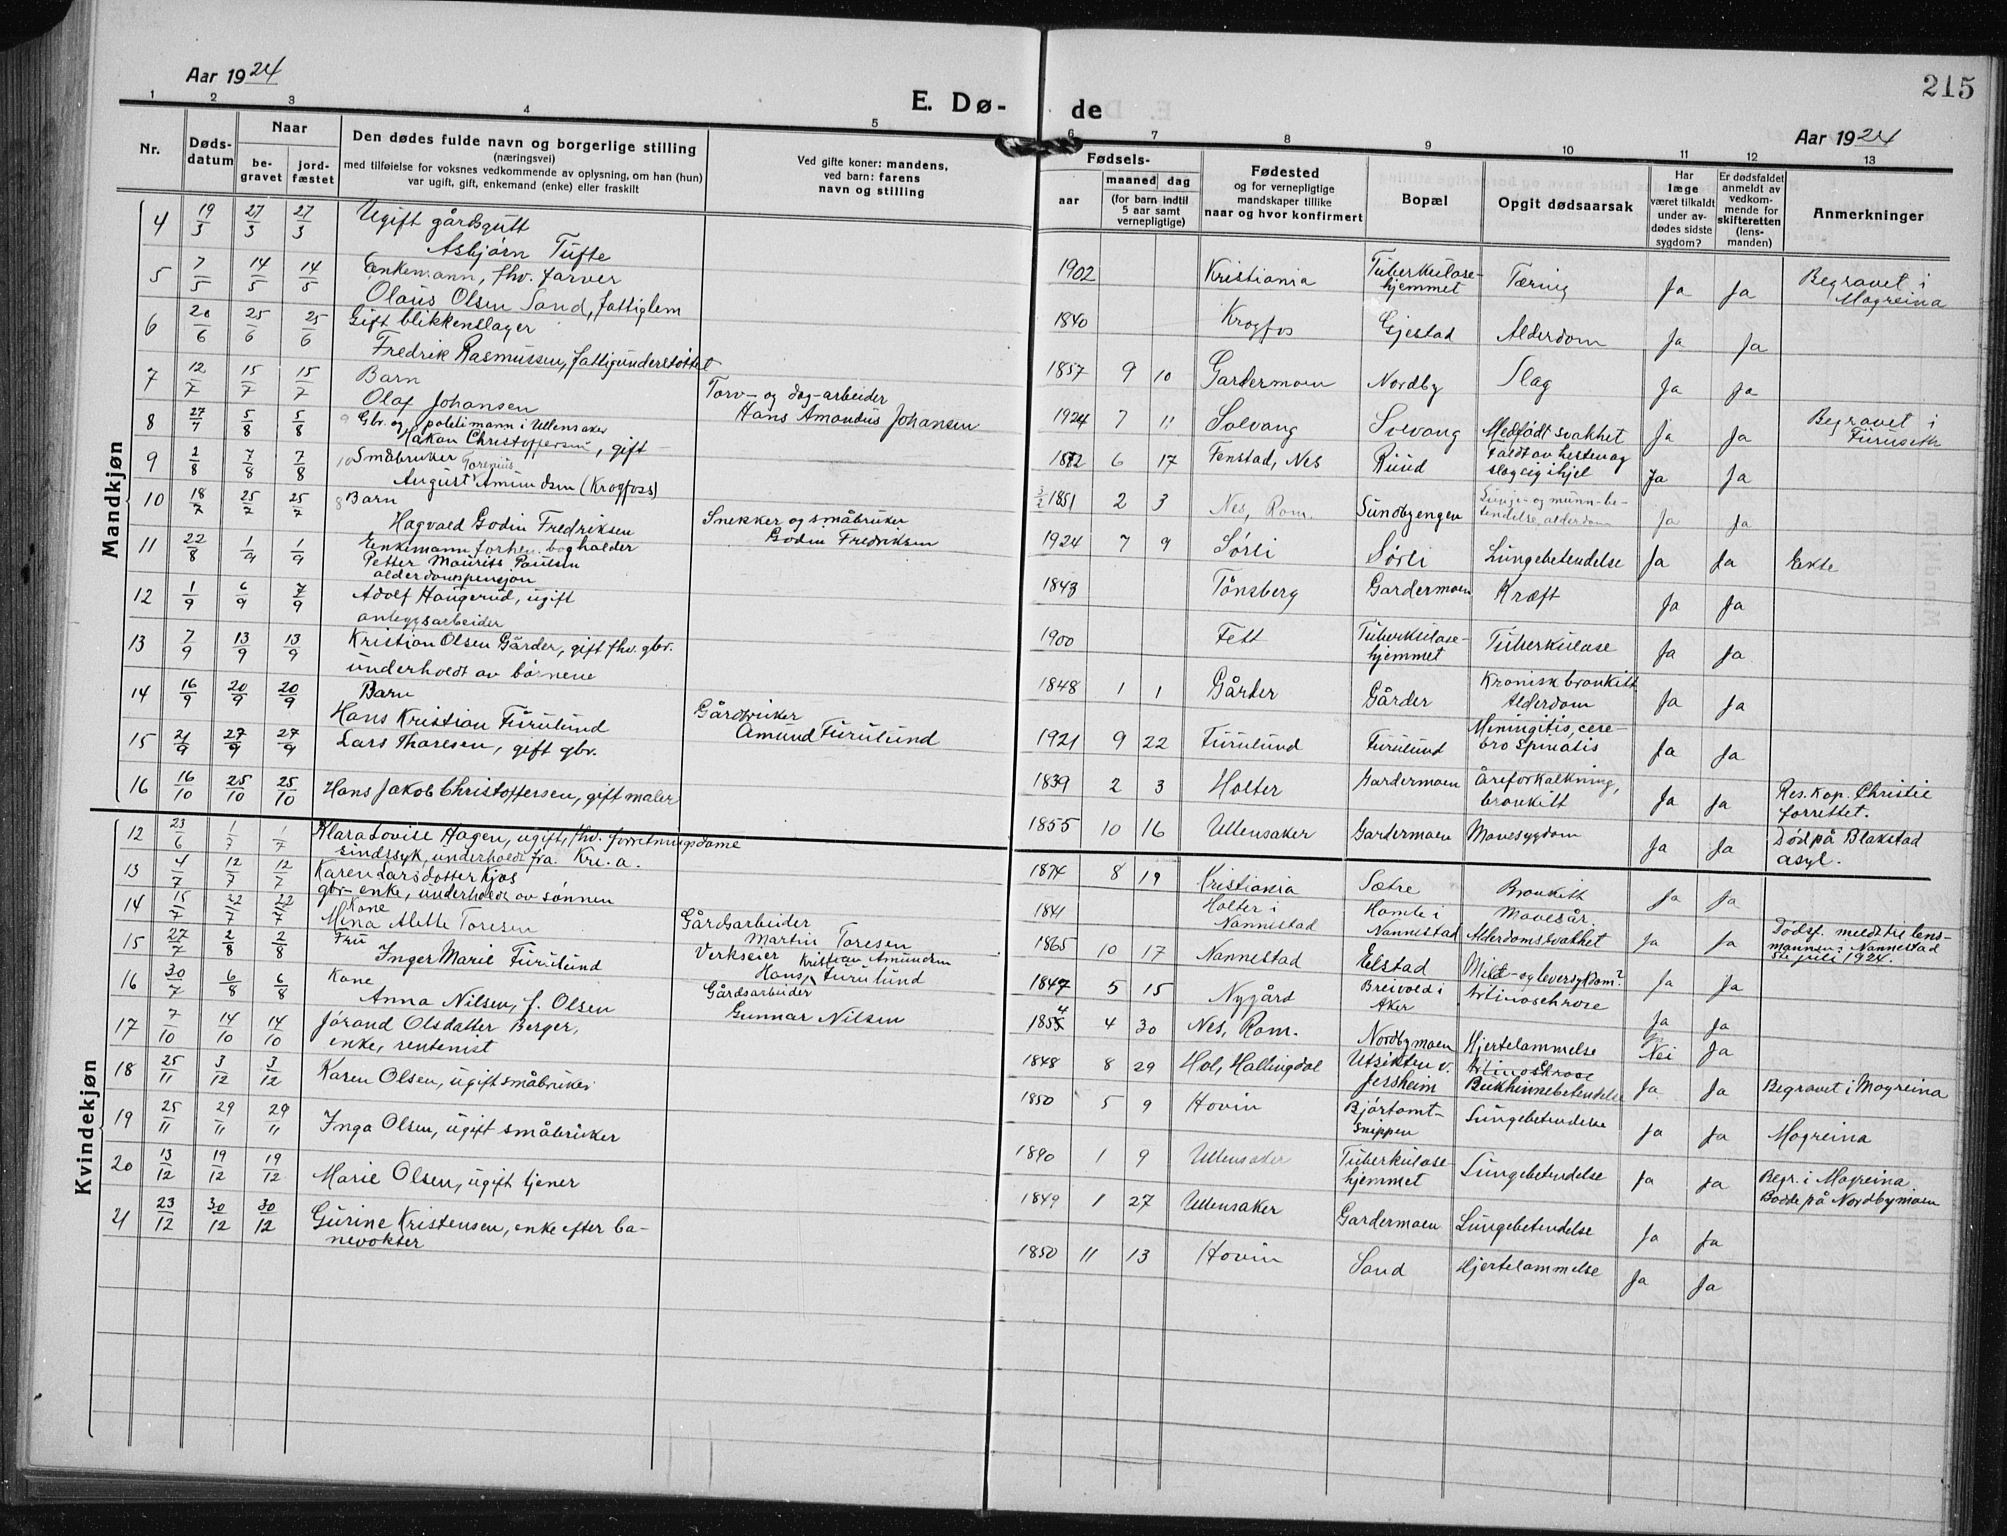 215
Aar 1924
E. Dø-
de
Aar 1924
1 2 3 4 5 6 7 8 9 10 11 12 13
Nr.
Døds-
datum
Naar
be-
gravet
jord-
fæstet
Den dødes fulde navn og borgerlige stilling
(næringsvei)
med tilføielse for voksnes vedkommende av oplysning, om han (hun)
var ugift, gift, enkemand (enke) eller fraskilt
Ved gifte koner: mandens,
ved barn: farens
navn og stilling
Fødsels-
aar
maaned dag
(for barn indtil
5 aar samt
vernepligtige)
Fødested
og for vernepligtige
mandskaper tillike
naar og hvor konfirmert
Bopæl
Opgit dødsaarsak
Har
læge
været tilkaldt
under av-
dødes sidste
sygdom?
Er dødsfaldet
anmeldt av
vedkom-
mende for
skifteretten
(lens-
manden)
Anmerkninger
Mandkjøn
4 19/3 27/3 27/3 Ugift gårdsgutt
Asbjørn Tufte
1902 Kristiania Tuberkulose-
hjemmet Tæring Ja Ja Begravet i
Mogreina
5 7/5 14/5 14/5 Enkemann, fhv. farver
Olaus Olsen Sand, fattiglem
1840 Krogfos Gjestad Alderdom Ja Ja
6 20/6 25/6 25/6 Gift blikkenslager
Fredrik Rasmussen, fattigunderstøttet
1857 9 10 Gardermoen Nordby Slag Ja Ja
7 12/7 15/7 15/7 Barn
Olaf Johansen
Torv- og dag-arbeider
Hans Amandus Johansen
1924 7 11 Solvang Solvang Medfødt svakhet Ja Ja Begravet i
Furuseth
8 27/7 5/8 5/8 Gbr. og politimann i Ullensaker
Håkon Christoffersen, gift
1872 6 17 Fenstad, Nes Ruud Faldt av hesten og
slog sig ihjel Ja Ja
9 2/8 7/8 7/8 Småbruker
August Torenius Amundsen (Krogfoss)
1851 2 3 Nes, Rom. Sundbyengen Lunge- og munn-be-
tendelse, alderdom Ja Ja
10 18/7 25/7 25/7 Barn
Hagvald Godin Fredriksen
Snekker og småbruker
Godin Fredriksen
1924 7 9 Sørli Sørli Lungebetendelse Ja Ja Ekte
11 22/8 1/9 1/9 Enkemann, forhen. bogholder
Petter Maurits Paulsen
alderdomspensjon
1843 Tønsberg Gardermoen Kræft Ja Ja
12 1/9 6/9 7/9 Adolf Haugerud, ugift
anleggsarbeider
1900 Fett Tuberkulose-
hjemmet Tuberkulose Ja Ja
13 7/9 13/9 13/9 Kristian Olsen Gårder, gift fhv. gbr.
underholdt av børnene
1848 1 1 Gårder Gårder Kronisk bronkitt
Alderdom Ja Ja
14 16/9 20/9 20/9 Barn
Hans Kristian Furulund
Gårdbruker
Amund Furulund
1921 9 22 Furulund Furulund Miningitis, cere-
bro spinalis Ja Ja
15 21/9 27/9 27/9 Lars Thoresen, gift gbr.
1839 2 3 Holter Gardermoen Åreforkalkning,
bronkitt Ja Ja Res. kap. Christie
forrettet.
16 16/10 25/10 25/10 Hans Jakob Christoffersen, gift maler
1855 10 16 Ullensaker Gardermoen Mavesygdom Ja Ja Død på Blakstad
asyl.
Kvindekjøn
12 23/6 1/7 1/7 Klara Lovise Hagen, ugift, fhv. forretningsdame
sindssyk, underholdt fra Kr.a.
1874 8 19 Kristiania Sætre Bronkitt Ja Ja
13 4/7 12/7 12/7 Karen Larsdotter Kjos
gbr-enke, underholdt av sønnen
1841 Holter i
Nannestad Homle i
Nannestad Mavesår.
Alderdomssvakhet Ja Ja Dødsf. meldt til lens-
mannen i Nannestad
5te juli 1924.
14 15/7 22/7 22/7 Kone
Mina Alette Toresen
Gårdsarbeider
Martin Toresen
1865 10 17 Nannestad Elstad Milt- og leversykdom? Ja Ja
15 27/7 2/8 2/8 Fru
Inger Marie Furulund
Verkseier
Hans Kristian Amundsen Furulund
1847 5 15 Nygård Breivold i
Aker Artinosklrose Ja Ja
16 30/7 6/8 6/8 Kone
Anna Nilsen, f. Olsen
Gårdsarbeider
Gunnar Nilsen
1854 4 30 Nes, Rom. Nordbymoen Hjertelammelse Nei Ja
17 7/10 14/10 14/10 Jørand Olsdatter Berger,
enke, rentenist
1848 8 29 Hol, Hallingdal Utsikten v.
Jessheim
Bukhinnebetendelse Ja Ja Begravet i Mogreina
18 25/11 3/12 3/12 Karen Olsen, ugift småbruker
1850 5 9 Hovin Bjørtomt-
snippen Lungebetendelse Ja Ja Mogreina
19 25/11 29/11 29/11 Inga Olsen, ugift småbruker
1890 1 9 Ullensaker Tuberkulose-
hjemmet Lungebetendelse Ja Ja Begr. i Mogreina.
Bodde på Nordbymoen
20 13/12 19/12 19/12 Marie Olsen, ugift tjener
1849 1 27 Ullensaker Gardermoen Lungebetendelse Ja Ja
21 23/12 30/12 30/12 Gurine Kristensen, enke efter ba-
nevokter
1850 11 13 Hovin Sand Hjertelammelse Ja Ja